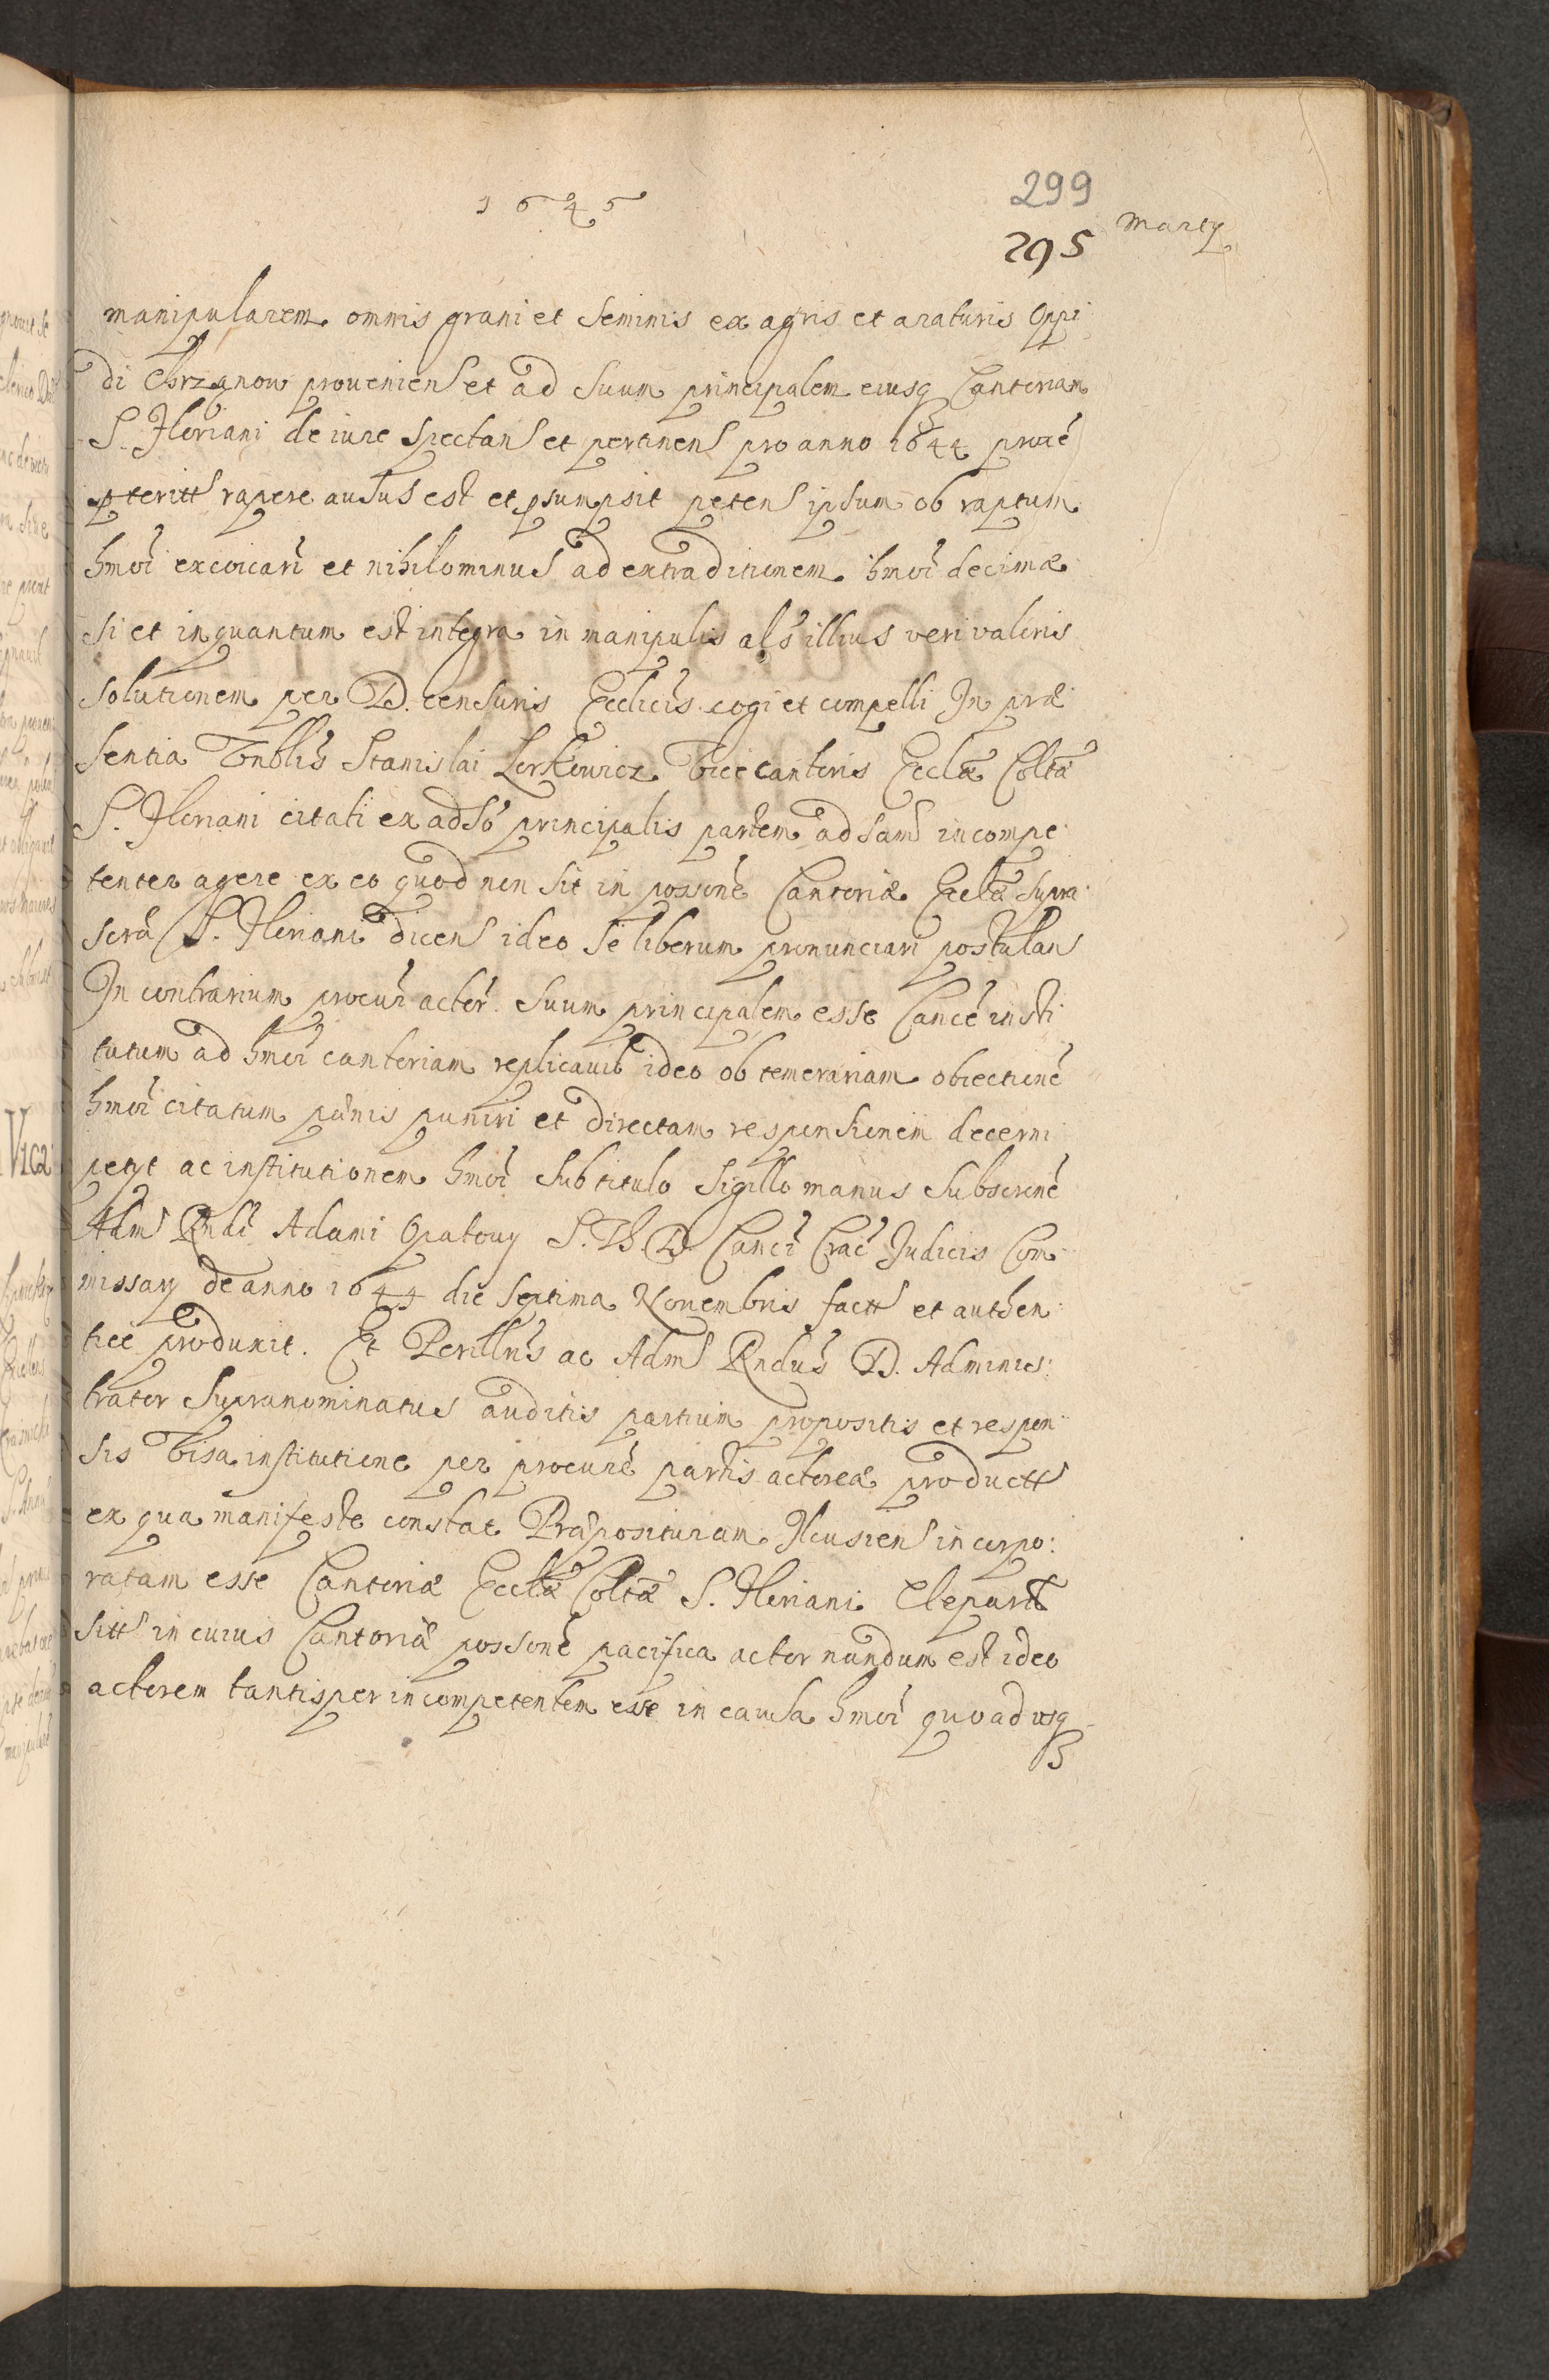 1645
299
295
Martÿ
manipularem omnis grani et seminis ex agris et araturis Oppi
di Chrzanow proueniens et ad suum principalem eiusq Cantoriam
S. Floriani de iure spectans et pertinens pro anno 1644 proxe
pteritt rapere ausus est et psumpsit petens ipsum ob raptum
hmoi excoicari et nihilominus ad extraditionem hmoi decimæ
si et inquantum est integra in manipulis als illius veri valoris
solutionem per D. censuris Ecclicis cogi et compelli In præ
sentia Vnblis Stanislai Vicecantoris Ecclæ Coltæ
S. Floriani citati ex adso principalis partem adsam incompe
tenter agere ex eo quod non sit in possone Cantoriæ Ecclæ supra
scra S. Floriani dicens ideo se liberum pronunciari postulans
In contrarium procur actor. suum principalem esse Cance insti
tutum ad hmoi cantoriam replicauit ideo ob temerariam obiectione
hmoi citatum pænis puniri et directam responsionem decerni
petyt ac institutionem hmoi sub titulo sigillo manus subscrine
Adm Rndi Adami Opatouy S. Th. D. Canci Crac Judicis Com
missarÿ de anno 1644 die septima Nouembris factt et authen
tice produxit. Et Perillris ac Adm Rndus D. Adminis:
trator supranominatus auditis partium propositis et respon
sis Visa institutione per procure partis actoreæ productt
ex qua manifeste constat Præposituram Ilcusiens incorpo:
ratam esse Cantoriæ Ecclæ Coltæ S. Floriani Clepar
sitt in cuius Cantoriæ possone pacifica actor nundum est ideo
actorem tantisper incompetentem esse in causa hmoi quoad usq